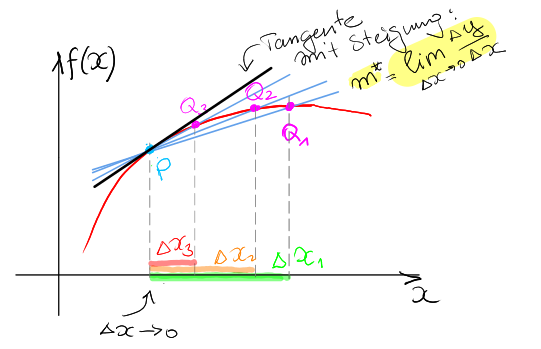 Tangente
mit Steigung:
m* = lim Δy/Δx
Δx→0
f(x)
Q₃
Q₂
Q₁
P
Δx₃
Δx₂
Δx₁
x
Δx→0